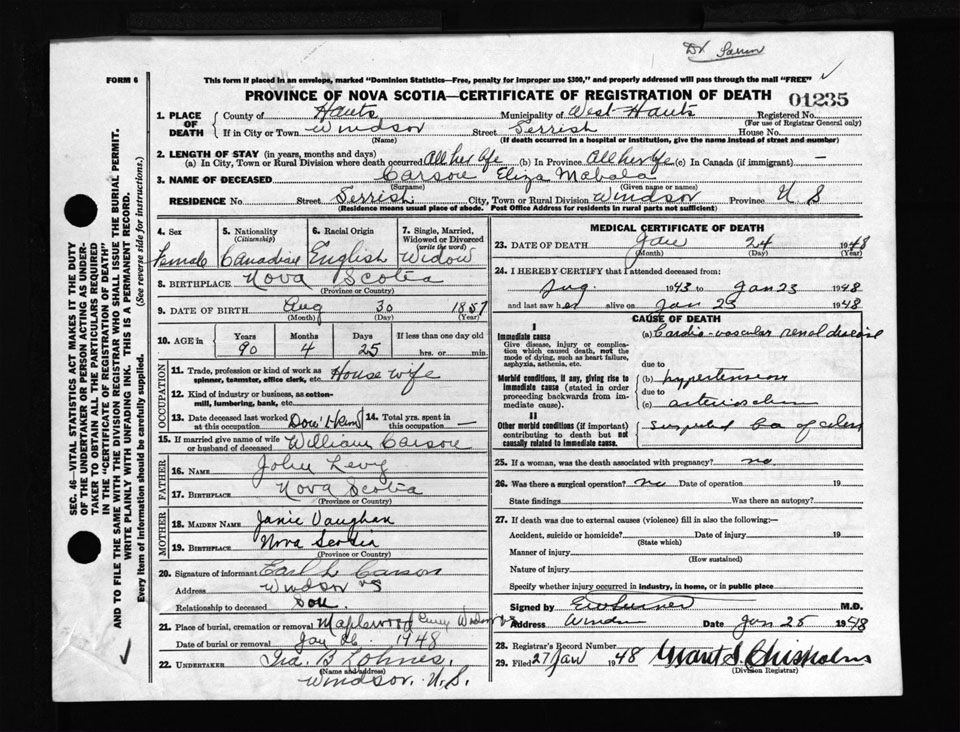 FORM 6
This form if placed in an envelope, marked "Dominion Statistics—Free, penalty for improper use $300," and properly addressed will pass through the mail "FREE"
PROVINCE OF NOVA SCOTIA—CERTIFICATE OF REGISTRATION OF DEATH
01235
1. PLACE OF DEATH
County of Hants Municipality of West Hants Registered No.
(For use of Registrar General only)
If in City or Town Windsor Street House No.
(Name) (If death occurred in a hospital or institution, give the name instead of street and number)
2. LENGTH OF STAY (in years, months and days)
(a) In City, Town or Rural Division where death occurred All her life (b) In Province All her life (c) In Canada (if immigrant) —
3. NAME OF DECEASED Carson Eliza
(Surname) (Given name or names)
RESIDENCE No. Street City, Town or Rural Division Windsor Province N S
(Residence means usual place of abode. Post Office Address for residents in rural parts not sufficient)
4. Sex Female
5. Nationality (Citizenship) Canadian
6. Racial Origin English
7. Single, Married, Widowed or Divorced (write the word) Widow
8. BIRTHPLACE Nova Scotia
(Province or Country)
9. DATE OF BIRTH Aug 30 1857
(Month) (Day) (Year)
10. AGE in Years 90 Months 4 Days 25 If less than one day old hrs. or min.
OCCUPATION
11. Trade, profession or kind of work as spinner, teamster, office clerk, etc. House wife
12. Kind of industry or business, as cotton-mill, lumbering, bank, etc.
13. Date deceased last worked at this occupation
14. Total yrs. spent in this occupation —
15. If married give name of wife or husband of deceased William Carson
FATHER
16. NAME John Levy
17. BIRTHPLACE Nova Scotia
(Province or Country)
MOTHER
18. MAIDEN NAME Janie Vaughan
19. BIRTHPLACE Nova Scotia
(Province or Country)
20. Signature of informant Earl L Carson
Address Windsor NS
Relationship to deceased Son.
21. Place of burial, cremation or removal Maplewood Cemy Windsor
Date of burial or removal Jan 26 1948
22. UNDERTAKER Ira B Lohnes,
(Name and address)
Windsor, N.S.
MEDICAL CERTIFICATE OF DEATH
23. DATE OF DEATH Jan 24 1948
(Month) (Day) (Year)
24. I HEREBY CERTIFY that I attended deceased from:
Aug. 1943 to Jan 23 1948
and last saw her alive on Jan 23 1948
CAUSE OF DEATH
I
Immediate cause
Give disease, injury or complication which caused death, not the mode of dying, such as heart failure, asphyxia, asthenia, etc.
(a) Cardio-vascular renal disease
due to
Morbid conditions, if any, giving rise to immediate cause (stated in order proceeding backwards from immediate cause).
(b) hypertension
due to
(c)
II
Other morbid conditions (if important) contributing to death but not causally related to immediate cause.
Suspected Ca of colon
25. If a woman, was the death associated with pregnancy? no
26. Was there a surgical operation? no Date of operation 19
State findings Was there an autopsy?
27. If death was due to external causes (violence) fill in also the following:—
Accident, suicide or homicide? Date of injury 19
(State which)
Manner of injury
(How sustained)
Nature of injury
Specify whether injury occurred in industry, in home, or in public place
Signed by M.D.
Address Windsor Date Jan 25 1948
28. Registrar's Record Number
29. Filed 27 Jan 1948 Grant S. Chisholm
(Division Registrar)
SEC. 46—VITAL STATISTICS ACT MAKES IT THE DUTY
OF THE UNDERTAKER OR PERSON ACTING AS UNDER-
TAKER TO OBTAIN ALL THE PARTICULARS REQUIRED
IN THE "CERTIFICATE OF REGISTRATION OF DEATH"
AND TO FILE THE SAME WITH THE DIVISION REGISTRAR WHO SHALL ISSUE THE BURIAL PERMIT.
WRITE PLAINLY WITH UNFADING INK. THIS IS A PERMANENT RECORD.
Every item of information should be carefully supplied. (See reverse side for instructions.)